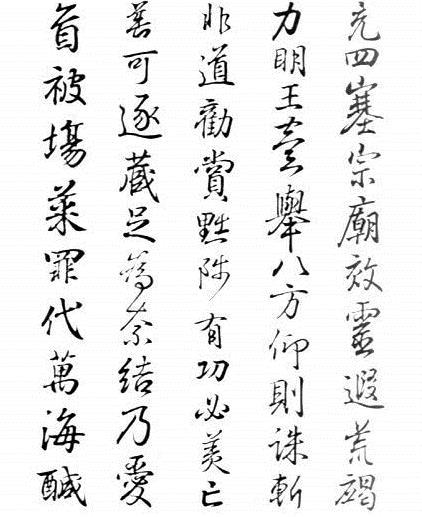 充四塞宗廟效靈遐荒竭
力明王舉八方仰則誅斬
非道勸賞黜陟有功必美亡
善可逐藏足為奈結乃愛
首被場菜罪代萬海鹹